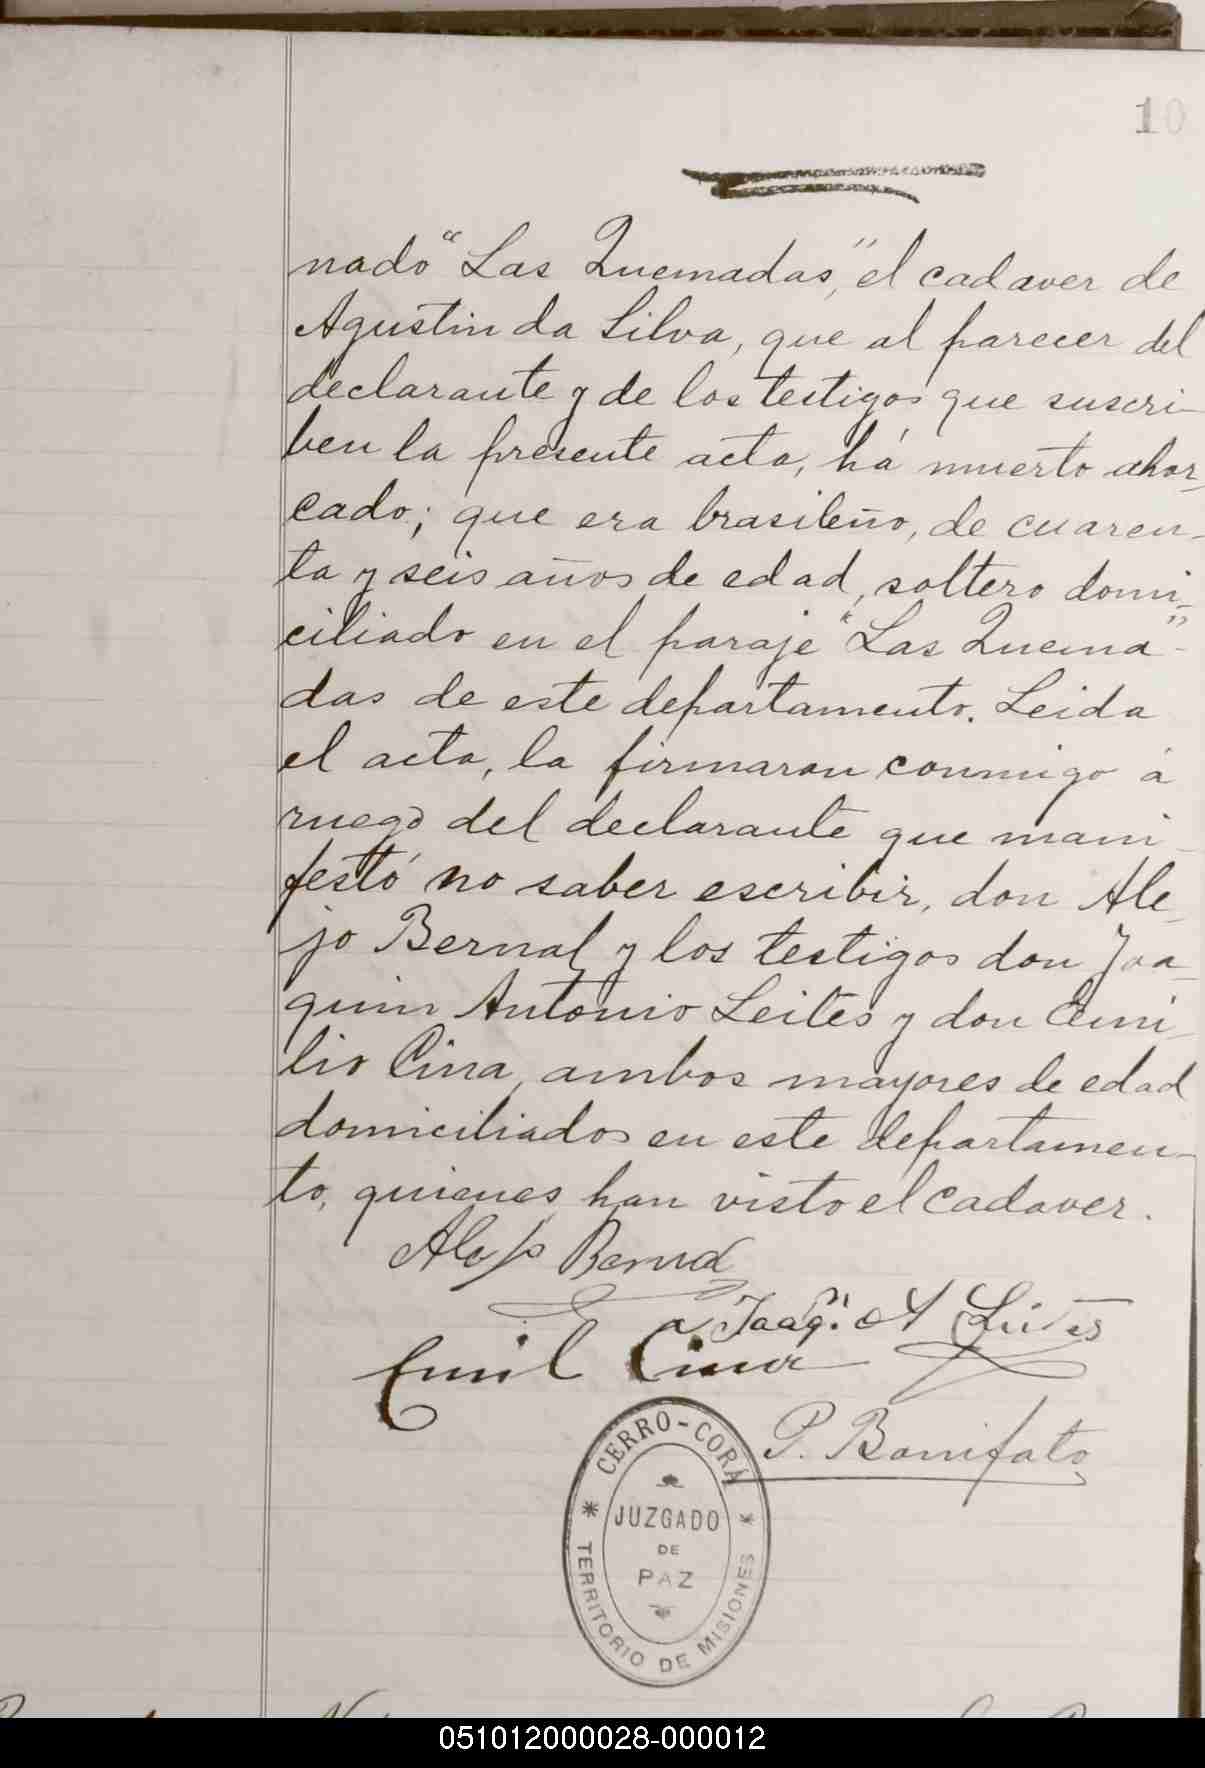 10
nado "Las Quemadas," el cadaver de
Agustin da Silva, que al parecer del
declarante y de los testigos que suscri-
ben la presente acta, há muerto ahor-
cado; que era brasileño, de cuaren-
ta y seis años de edad, soltero domi-
ciliado en el paraje "Las Quema"-
das de este departamento. Leida
el acta, la firmaron conmigo á
ruego del declarante que mani-
festó no saber escribir, don Ale-
jo Bernal y los testigos don Joa-
quin Antonio Leites y don Emi-
lio Cina, ambos mayores de edad
domiciliados en este departamen-
to, quienes han visto el cadaver.
Alejo Bernal
Joaqn. A Leites
Emil Cina
P. Bonifato
CERRO-CORÁ
JUZGADO
DE
PAZ
TERRITORIO DE MISIONES
051012000028-000012